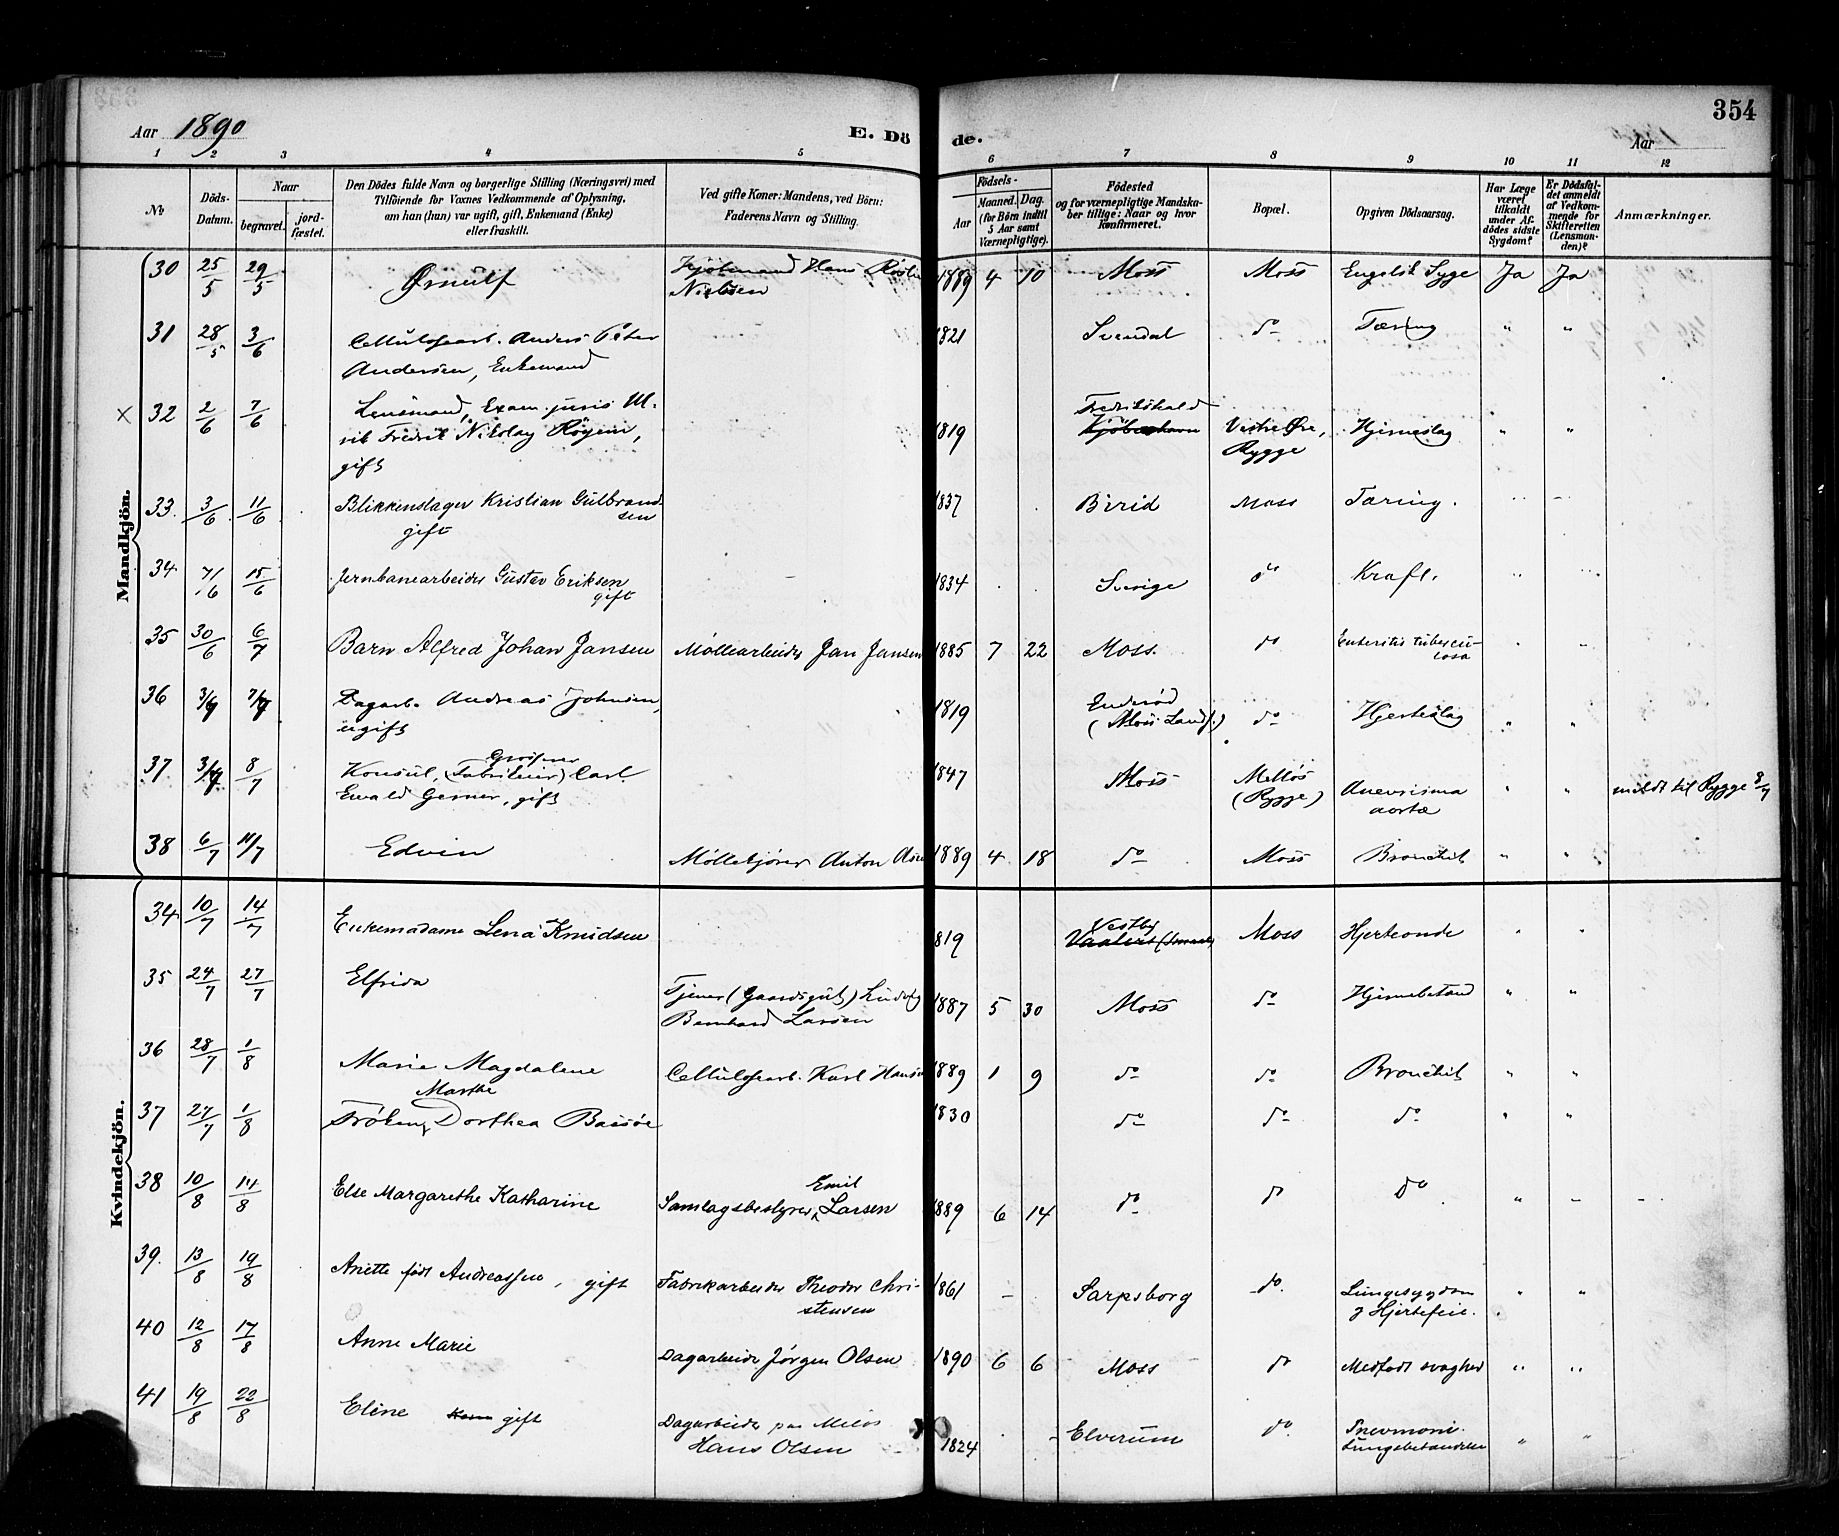 354
Aar 1890
E. Dö
de.
Aar
1 2 3 4 5 6 7 8 9 10 11 12
No
Döds-Datum.
Naar
begravet.
jord-fæstet.
Den Dödes fulde Navn og borgerlige Stilling (Næringsvei) med
Tilföiende for Voxnes Vedkommende af Oplysning,
om han (hun) var ugift, gift, Enkemand (Enke)
eller fraskilt.
Ved gifte Koner: Mandens, ved Börn:
Faderens Navn og Stilling.
Födsels-
Aar
Maaned. Dag.
(for Börn indtil
5 Aar samt
Værnepligtige).
Födested
og for værnepligtige Mandska-
ber tillige: Naar og hvor
konfirmeret.
Bopæl.
Opgiven Dödsaarsag.
Har Læge
været
tilkaldt
under Af-
dödes sidste
Sygdom?
Er Dödsfal-
det anmeldt
af Vedkom-
mende for
Skifteretten
(Lensman-
den)?
Anmærkninger.
Mandkjön.
30 25/5 29/5 Ørnulf Hans Nielsen 1889 4 10 Moss Moss Engelsk Syge Ja Ja
31 28/5 3/6 Cellulosearb. Anders Peter
Andersen, Enkemand 1821 Svendal do Tæring " "
× 32 2/6 7/6 Lensmand, Exam. juris Ul-
rik Fredrik Nikolay Röyem,
gift 1819 Fredrikshald
Kjöbenhavn Vestre Øre,
Rygge Hjerneslag " "
33. 3/6 11/6 Blikkenslager Kristian Gulbrand-
sen
gift 1837 Birid Moss Tæring. " "
34 15/6 Jernbanearbeider Gustav Eriksen
gift 1834 Sverige do Kræft. " "
35 30/6 6/7 Barn Alfred Johan Jansen Møllearbeider Jan Jansen 1885 7 22 Moss. do Enteritis tubercu-
losa " "
36 3/7 7/7 Dagarb. Andreas Johnsen,
ugift 1819 (Moss Lands.) do Hjerteslag " "
37 3/7 8/7 Konsul, (Fabrikeier) Carl
Ewald Gerner, gift 1847 Moss Melløs
(Rygge) Anevrisma
aortæ " " meldt til Rygge 8/7
38 6/7 11/7 Edvin Møllekjører Anton 1889 4 18 do Moss Bronchit " "
Kvindekjön.
34 10/7 14/7 Enkemadame Lena Knudsen 1819 Vestby
Moss Hjerteonde " "
35 24/7 27/7 Elfrida Tjener (Gaardsgut) Ludvig
Bernhard Larsen 1887 5 30 Moss do Hjernebetænd " "
36 28/7 1/8 Marie Magdalene Cellulosearb. Karl Hansen 1889 1 9 do do Bronchit " "
37 27/7 1/8 Marthe
Frøken, Dorthea Bassøe 1830 do do do " "
38 10/8 14/8 Else Margarethe Katharine Emil
Samlagsbestyrer Larsen 1889 6 14 do do do " "
39. 13/8 19/8 Anette født Andreassen, gift Fabrikarbeider Theodor Chri-
stensen 1861 – Sarpsborg do. Lungesygdom
& Hjertefeil. " "
40 12/8 17/8 Anne Marie Dagarbeider Jørgen Olsen 1890 6 6 Moss do Medfødt svaghed " "
41 19/8 22/8 Eline gift Dagarbeider paa Meløs
Hans Olsen 1824 Elverum do. Pnevmoni.
Lungebetændelse " "